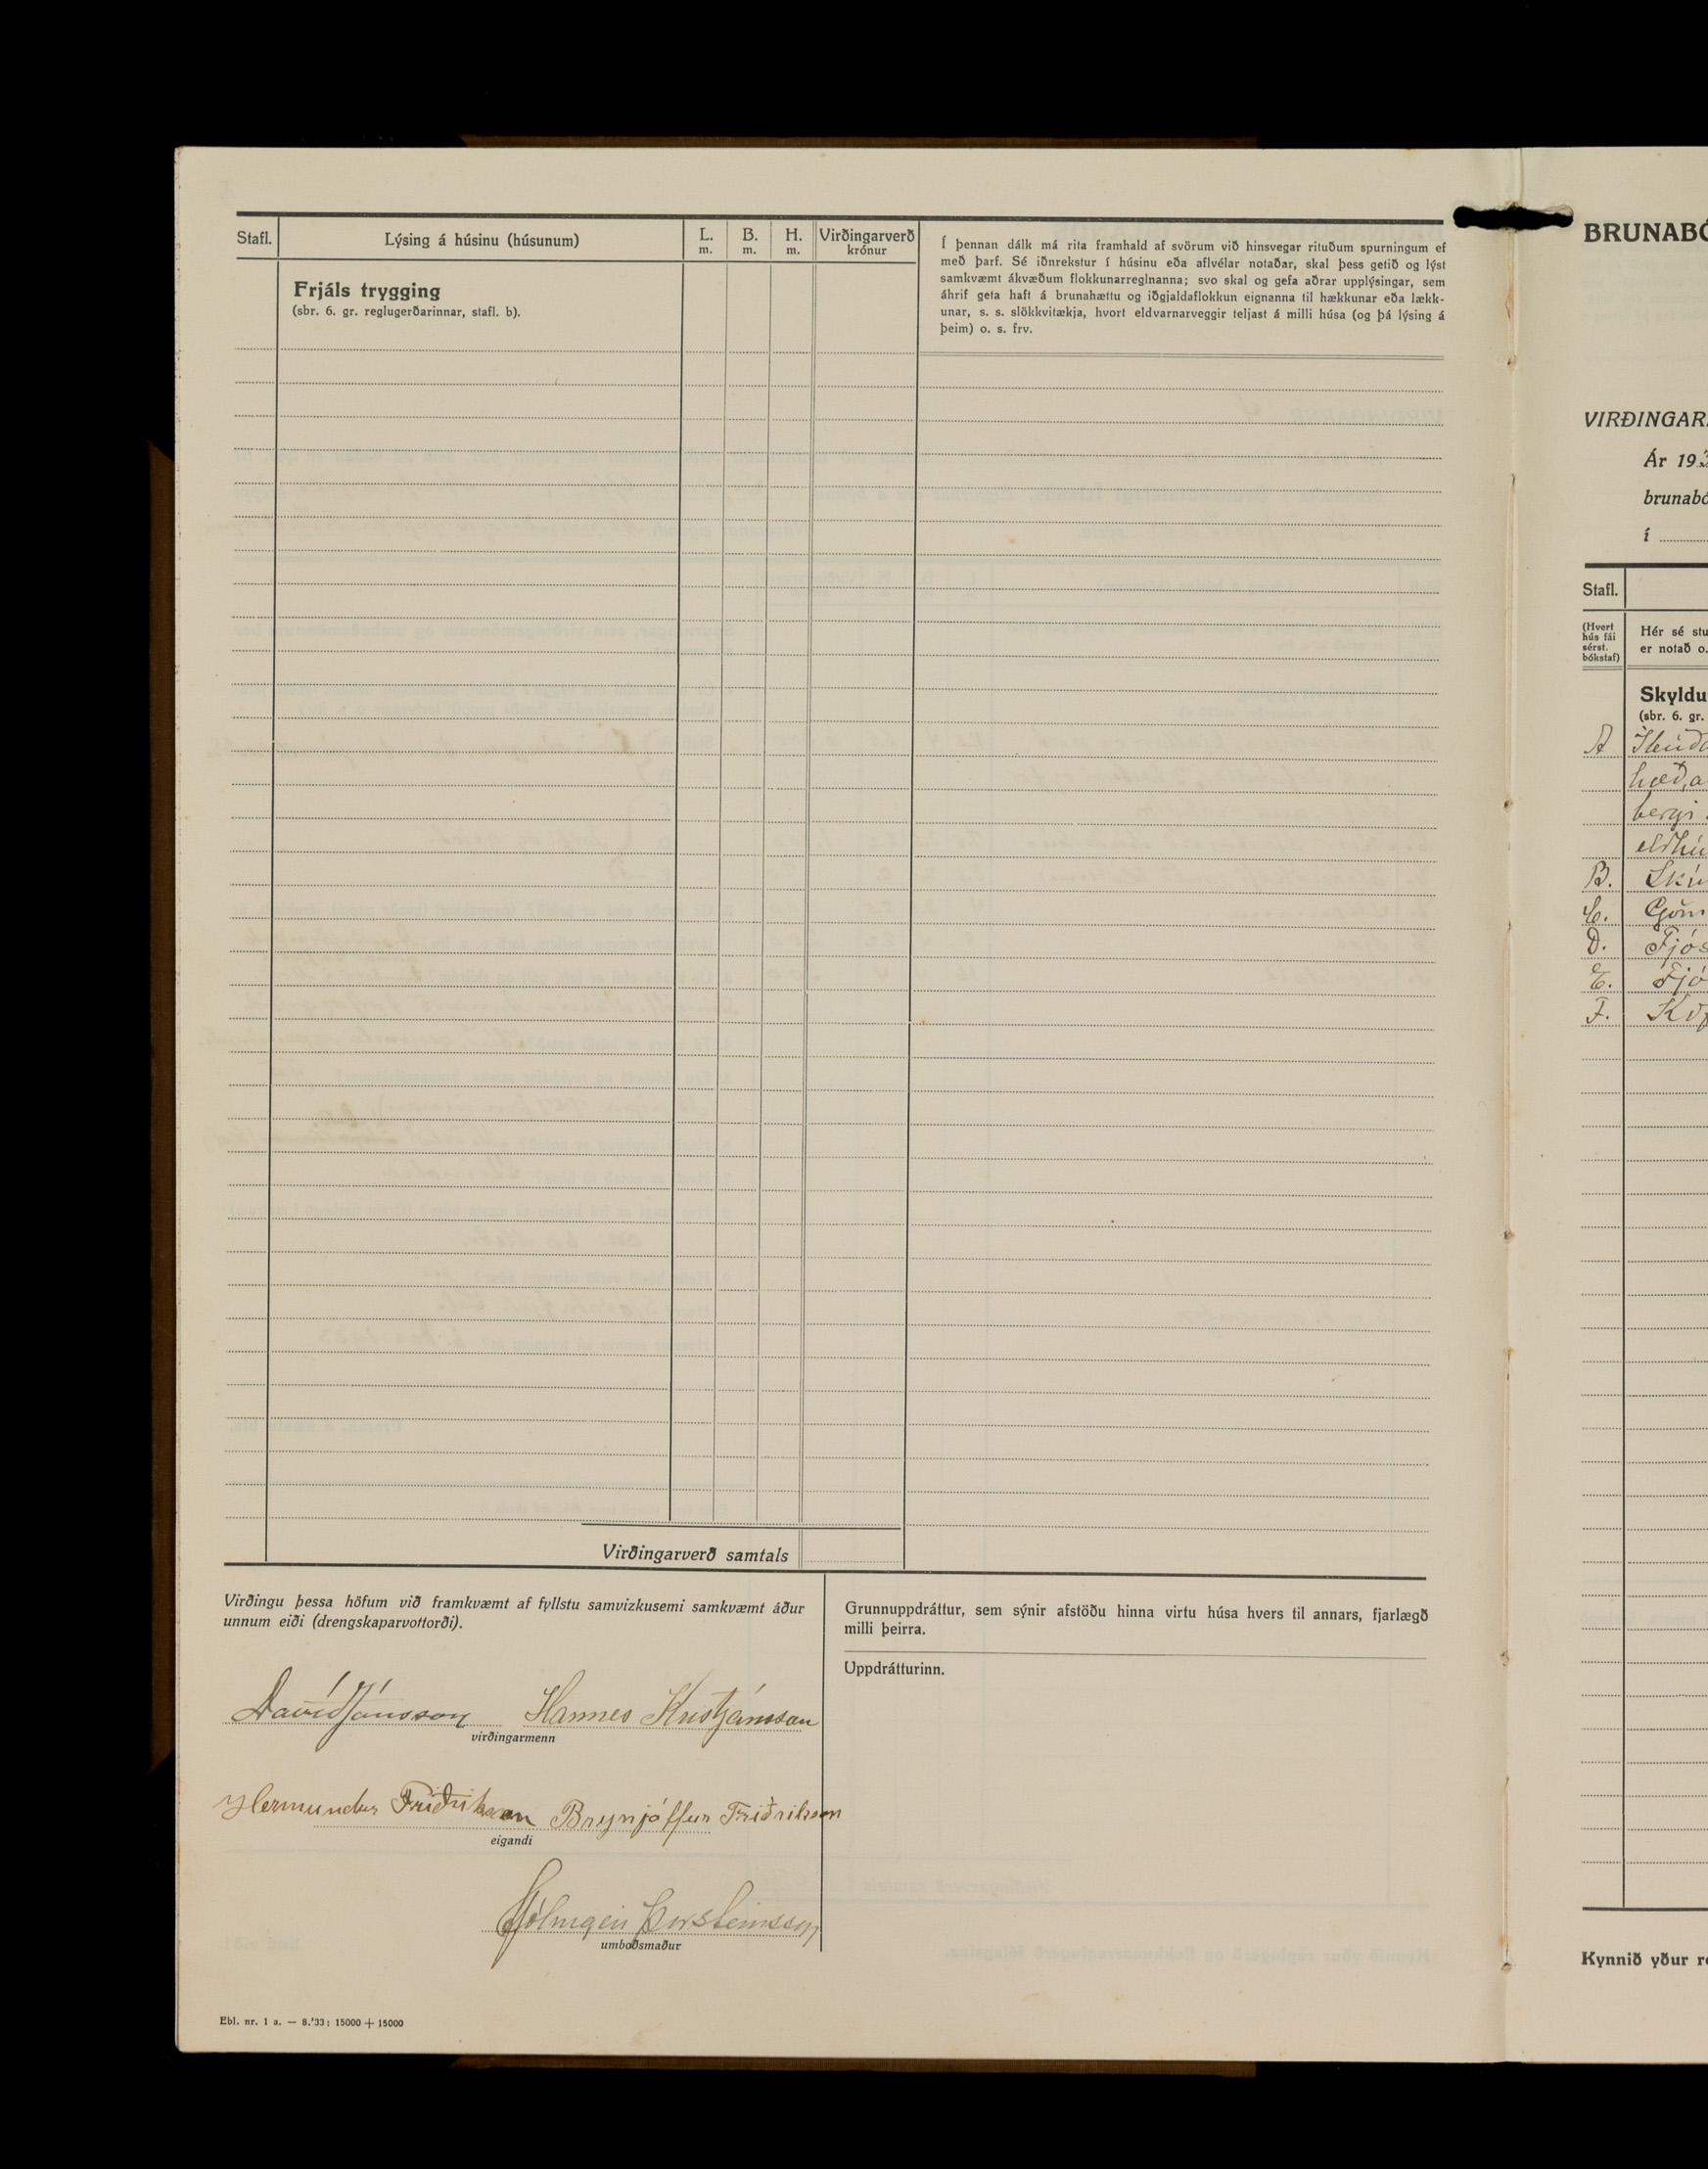 Stafl.
Lýsing á húsinu (húsunum)
L.
m.
B.
m.
H.
m.
Virðingarverð
krónur
Í þennan dálk má rita framhald af svörum við hinsvegar rituðum spurningum ef
með þarf. Sé iðnrekstur í húsinu eða aflvélar notaðar, skal þess getið og lýst
samkvæmt ákvæðum flokkunarreglnanna; svo skal og gefa aðrar upplýsingar, sem
áhrif geta haft á brunahættu og iðgjaldaflokkun eignanna til hækkunar eða lækk-
unar, s. s. slökkvitækja, hvort eldvarnarveggir teljast á milli húsa (og þá lýsing á
þeim) o. s. frv.
Frjáls trygging
(sbr. 6. gr. reglugerðarinnar, stafl. b).
Virðingarverð samtals
Virðingu þessa höfum við framkvæmt af fyllstu samvizkusemi samkvæmt áður
unnum eiði (drengskaparvottorði).
Davíð Jónsson Hannes Kristjánsson
virðingarmenn
Hermundur Friðriksson Brynjólfur Friðriksson
eigandi
Hólmgeir Þorsteinsson
umboðsmaður
Grunnuppdráttur, sem sýnir afstöðu hinna virtu húsa hvers til annars, fjarlægð
milli þeirra.
Uppdrátturinn.
Ebl. nr. 1 a. — 8.'33: 15000 + 15000
BRUNABÓ
VIRÐINGAR
Ár 193
brunabó
í
Stafl.
(Hvert
hús fái
sérst.
bókstaf)
Hér sé stu
er notað o.
Skyldu
(sbr. 6. gr.
A Íbúð
hæð, a
bergi
eldhú
B. Skú
C.
D. Fjós
E. Fjó
F.
Kynnið yður re